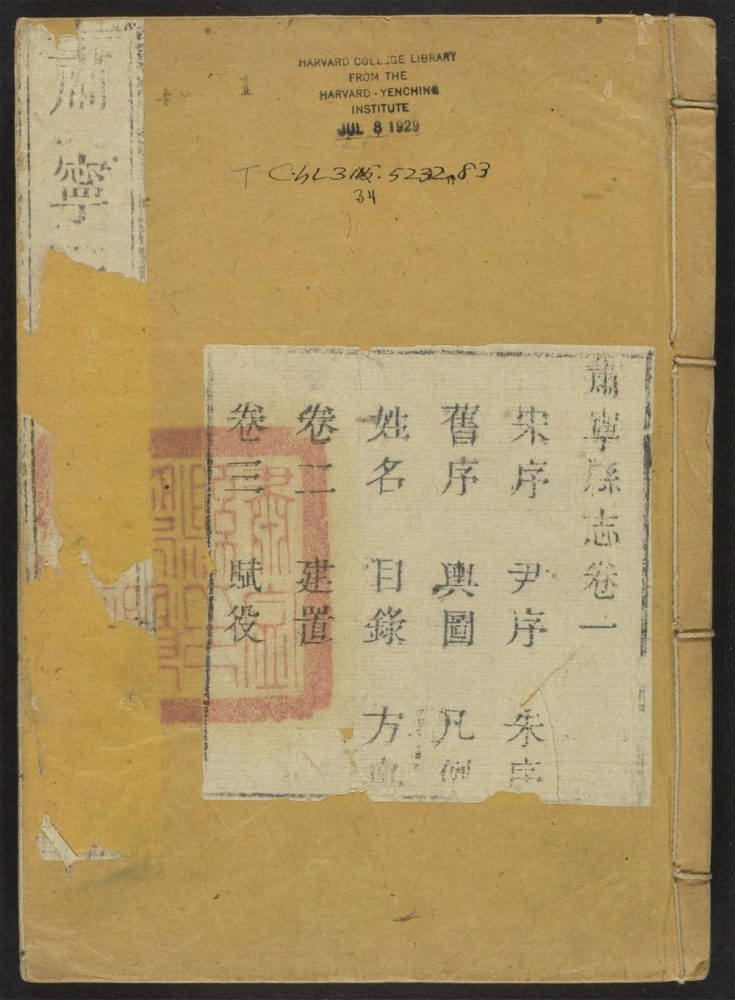 HARVARD COLLEGE LIBRARY
FROM THE
HARVARD-YENCHING
INSTITUTE
JUL 8 1929
T Ch L 3115.5232.83
34
肅寧
肅寧縣志卷一
宋序 尹序 朱序
舊序 輿圖 凡例
姓名 目錄 方輿
卷二 建置
卷三 賦役